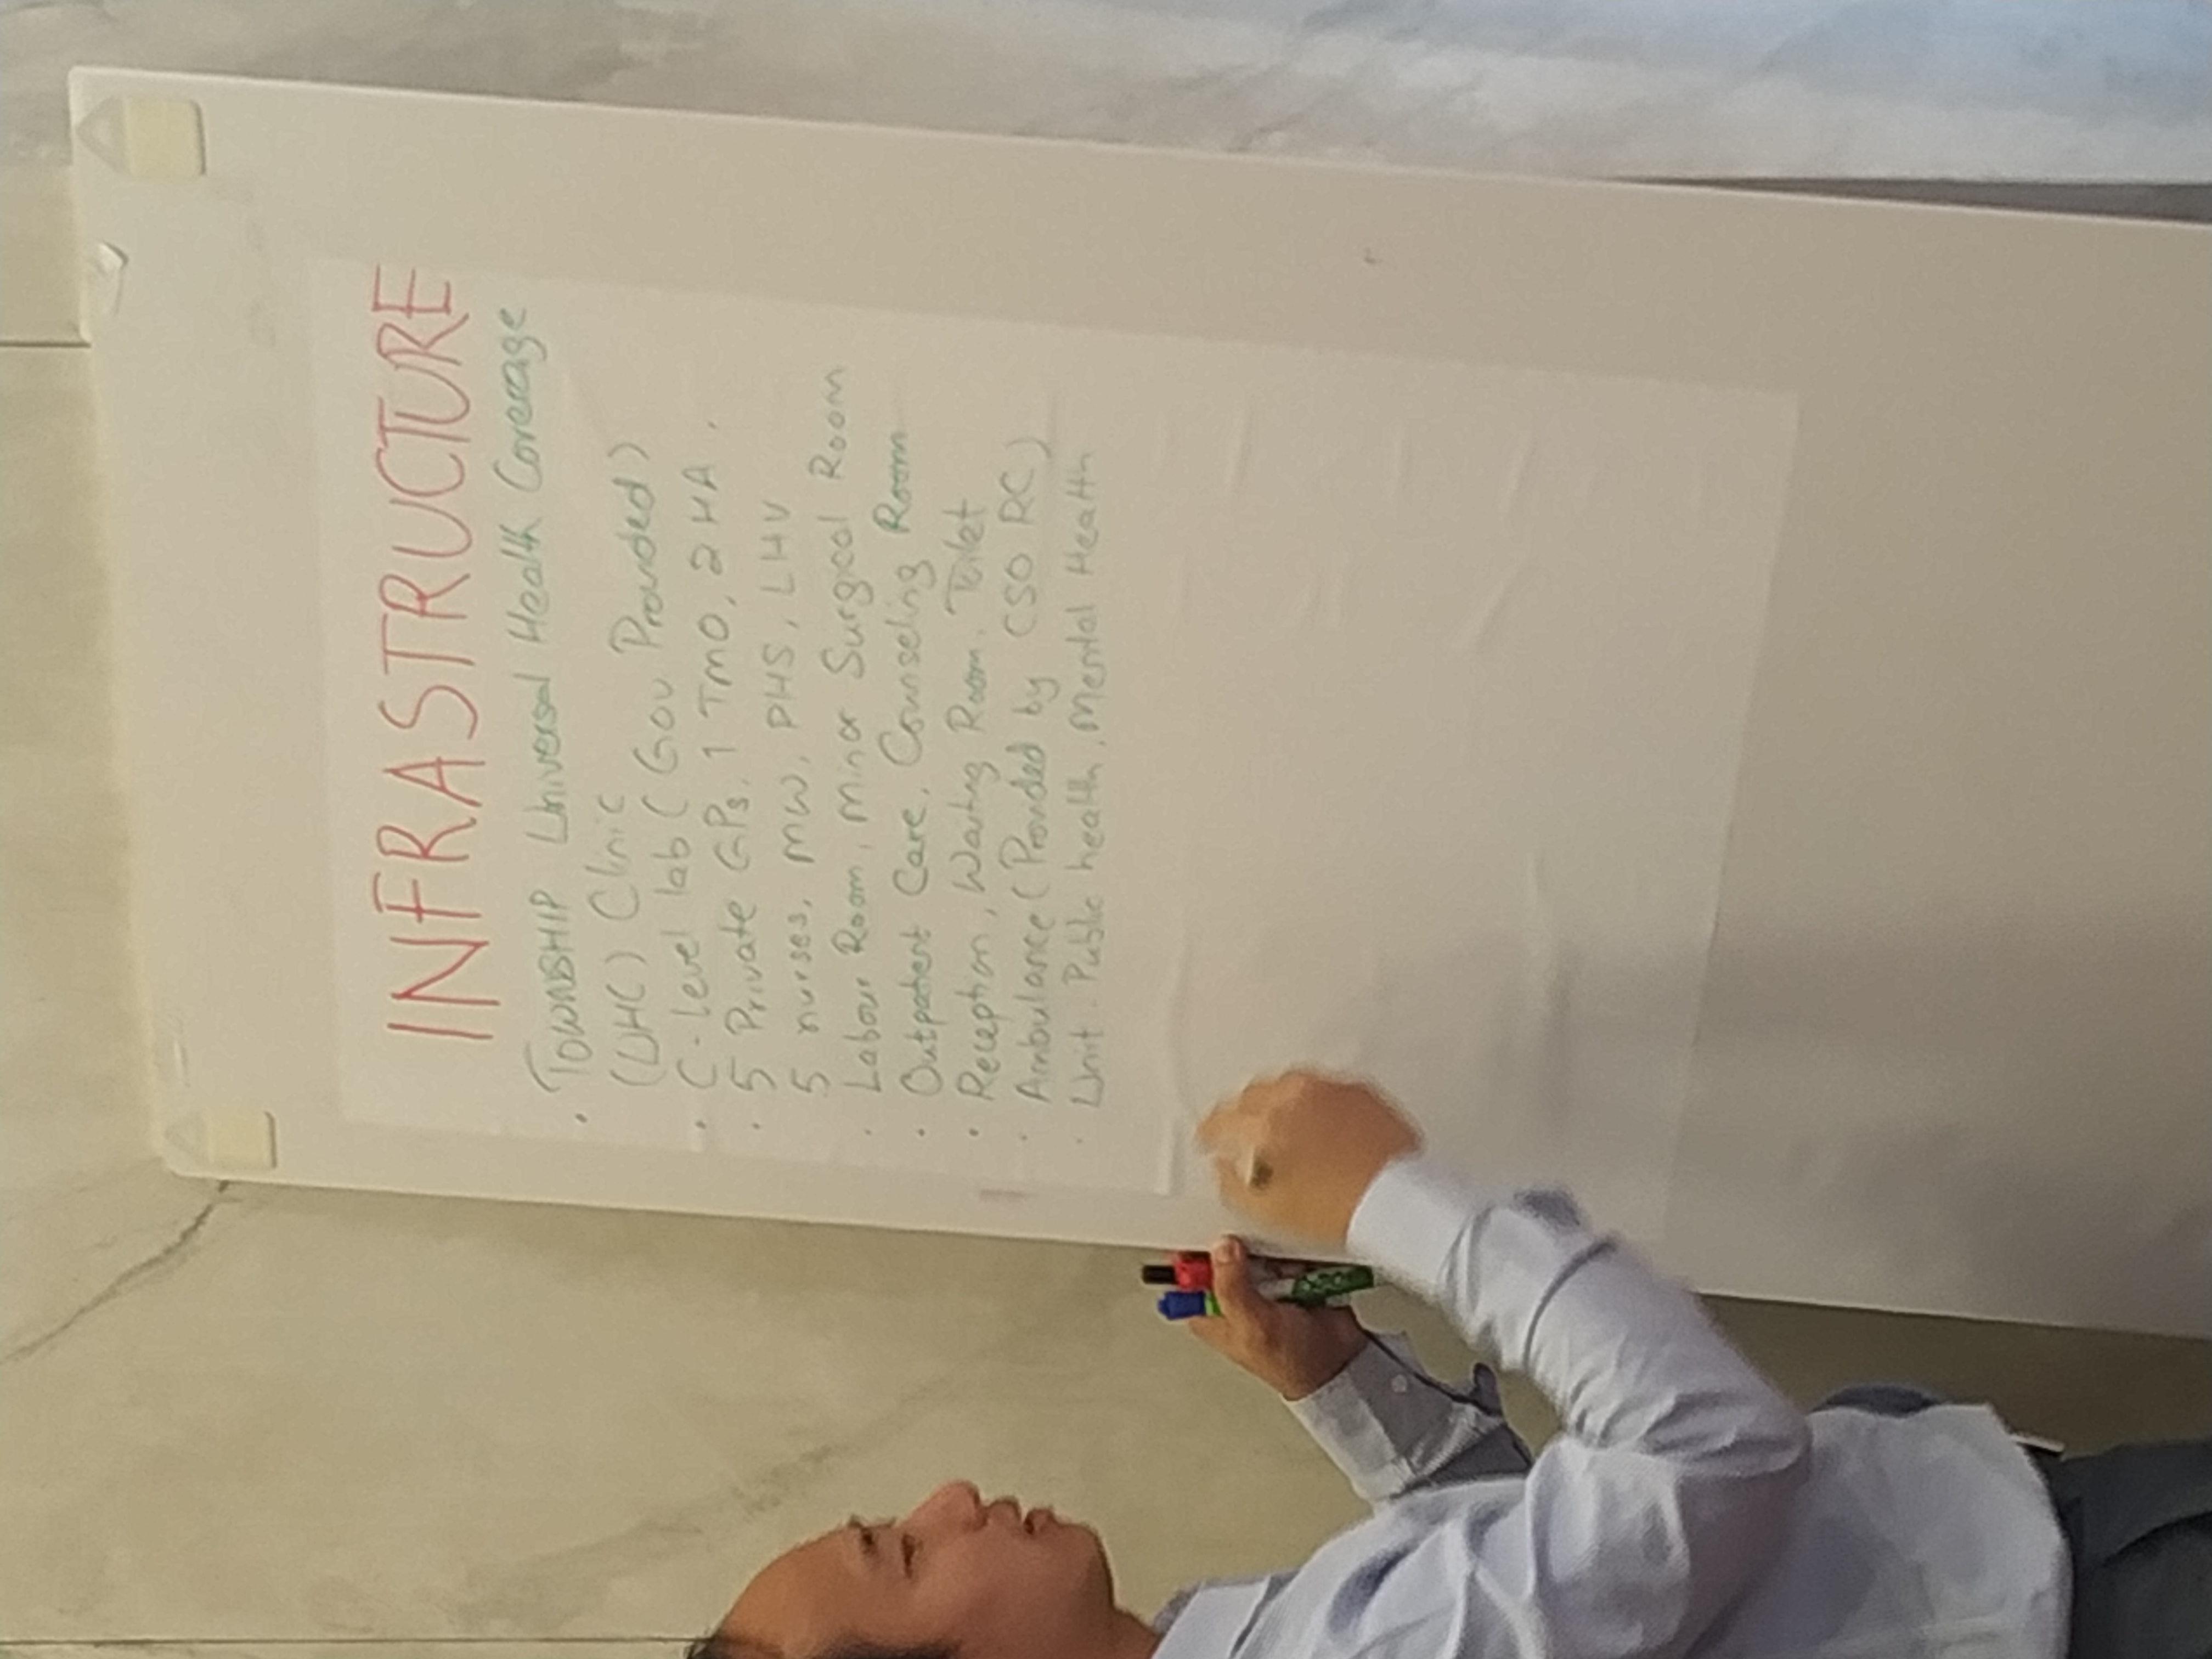 INFRASTRUCTURE
• TOWNSHIP Universal Health Coverage
(UHC) Clinic
• C-level lab (Gov Provided)
• 5 Private GPs, 1 TMO, 2 HA,
5 nurses, MW, PHS, LHV
• Labour Room, Minor Surgical Room
• Outpatient Care, Counseling Room
• Reception, Waiting Room, Toilet
• Ambulance (Provided by CSO RC)
• Unit. Public health, Mental Health